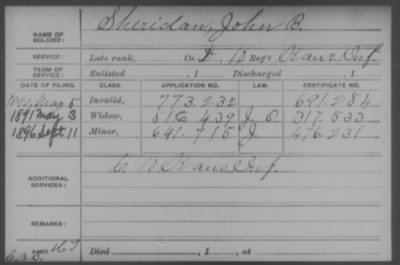 NAME OF SOLDIER: Sheridan, John B.
SERVICE: Late rank, Co. D, 10 Reg't Kans. Inf.
TERM OF SERVICE: Enlisted , 1 Discharged , 1
DATE OF FILING. CLASS. APPLICATION NO. LAW. CERTIFICATE NO.
May 5 Invalid, 773.232 691.284
1891 May 3 Widow, 516.439 J 317.533
1896 Sept 11 Minor, 641.715 J 476.231
ADDITIONAL SERVICES: Kans. Inf.
REMARKS:
Died , 1 , at